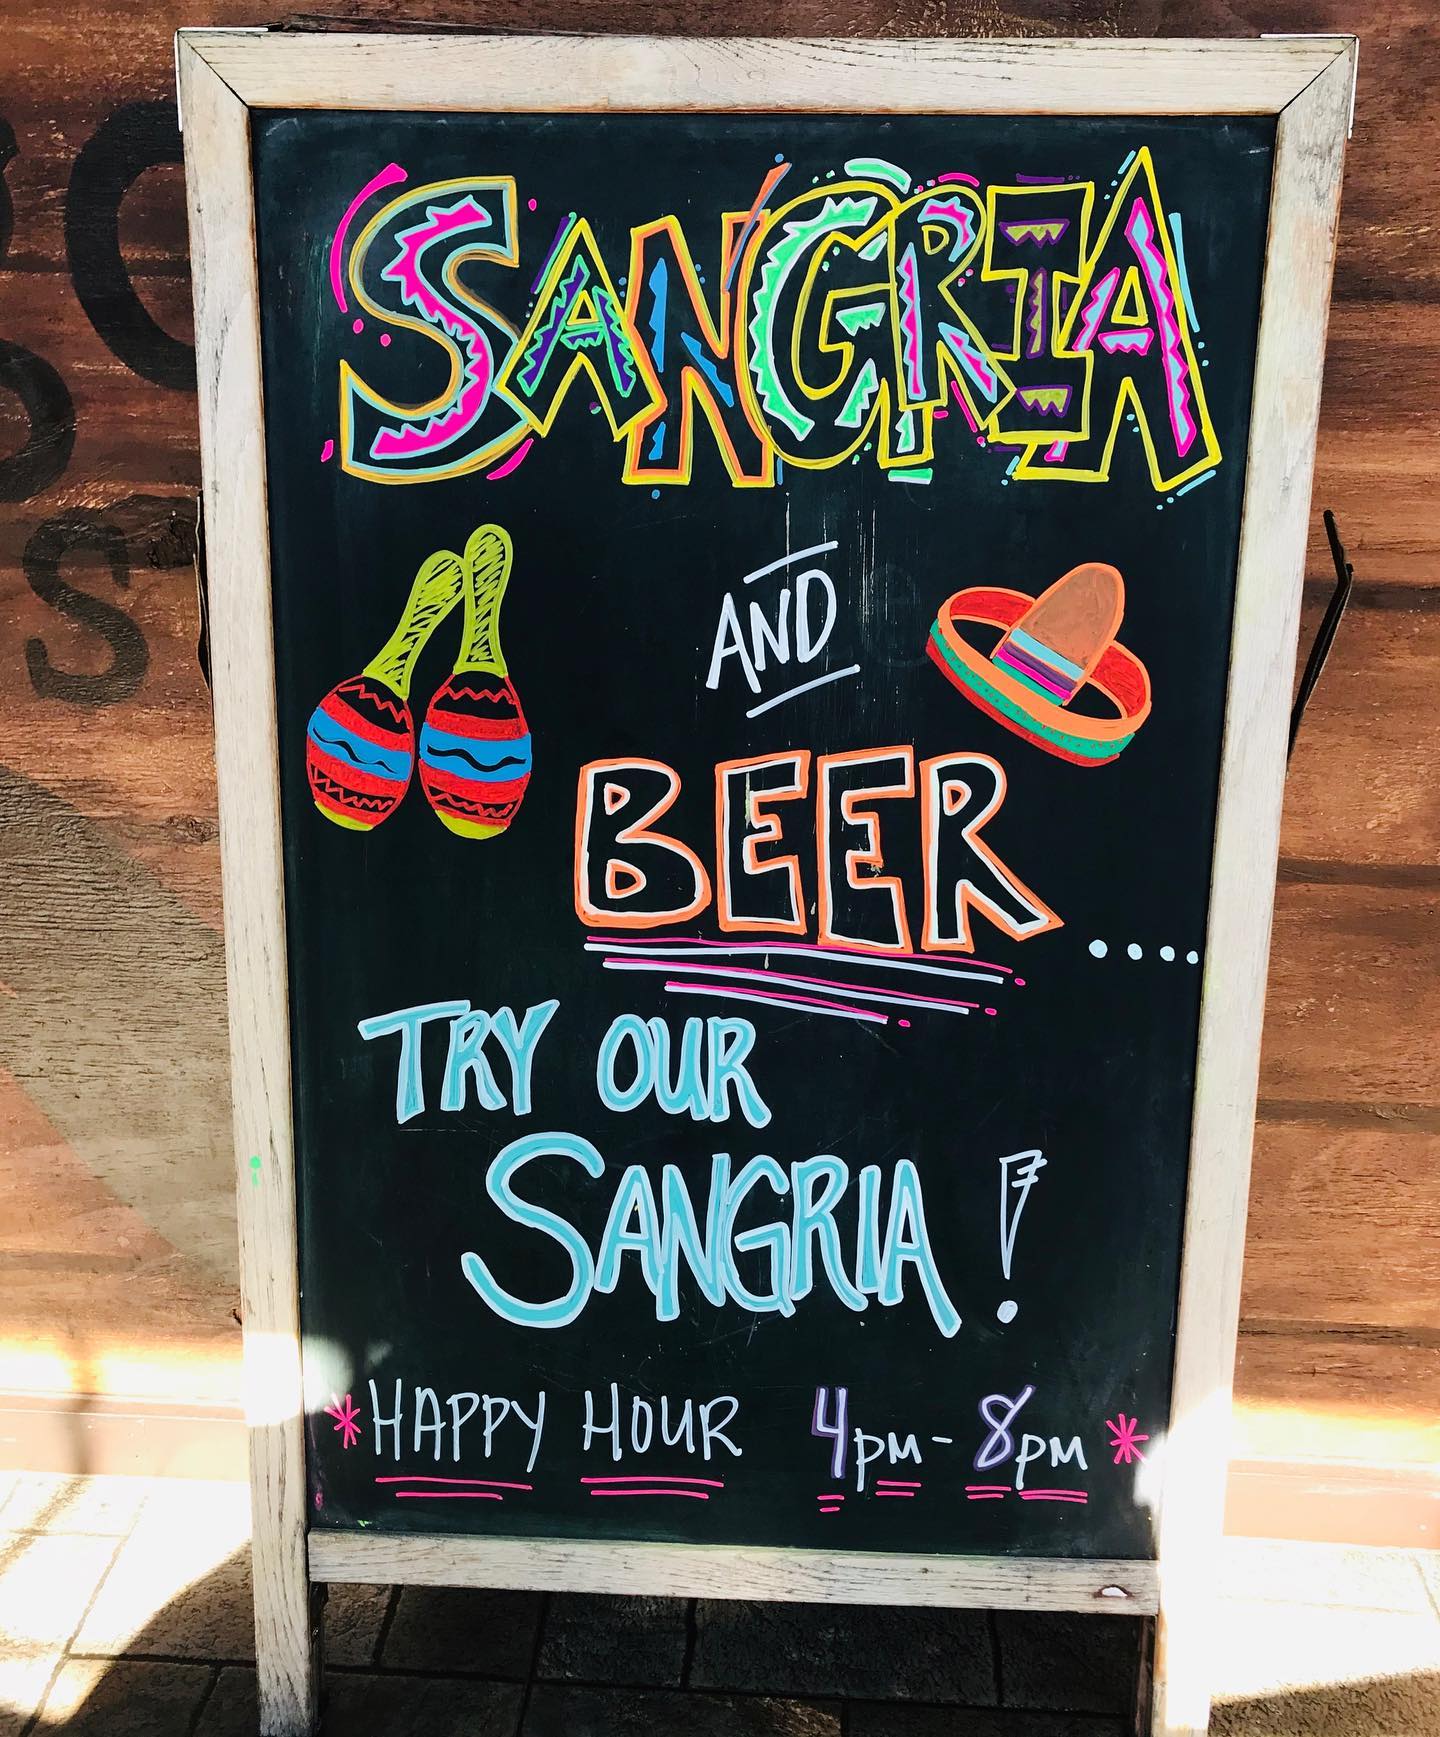 SANGRIA
AND
BEER....
TRY OUR
SANGRIA!
*HAPPY HOUR 4pm-8pm*